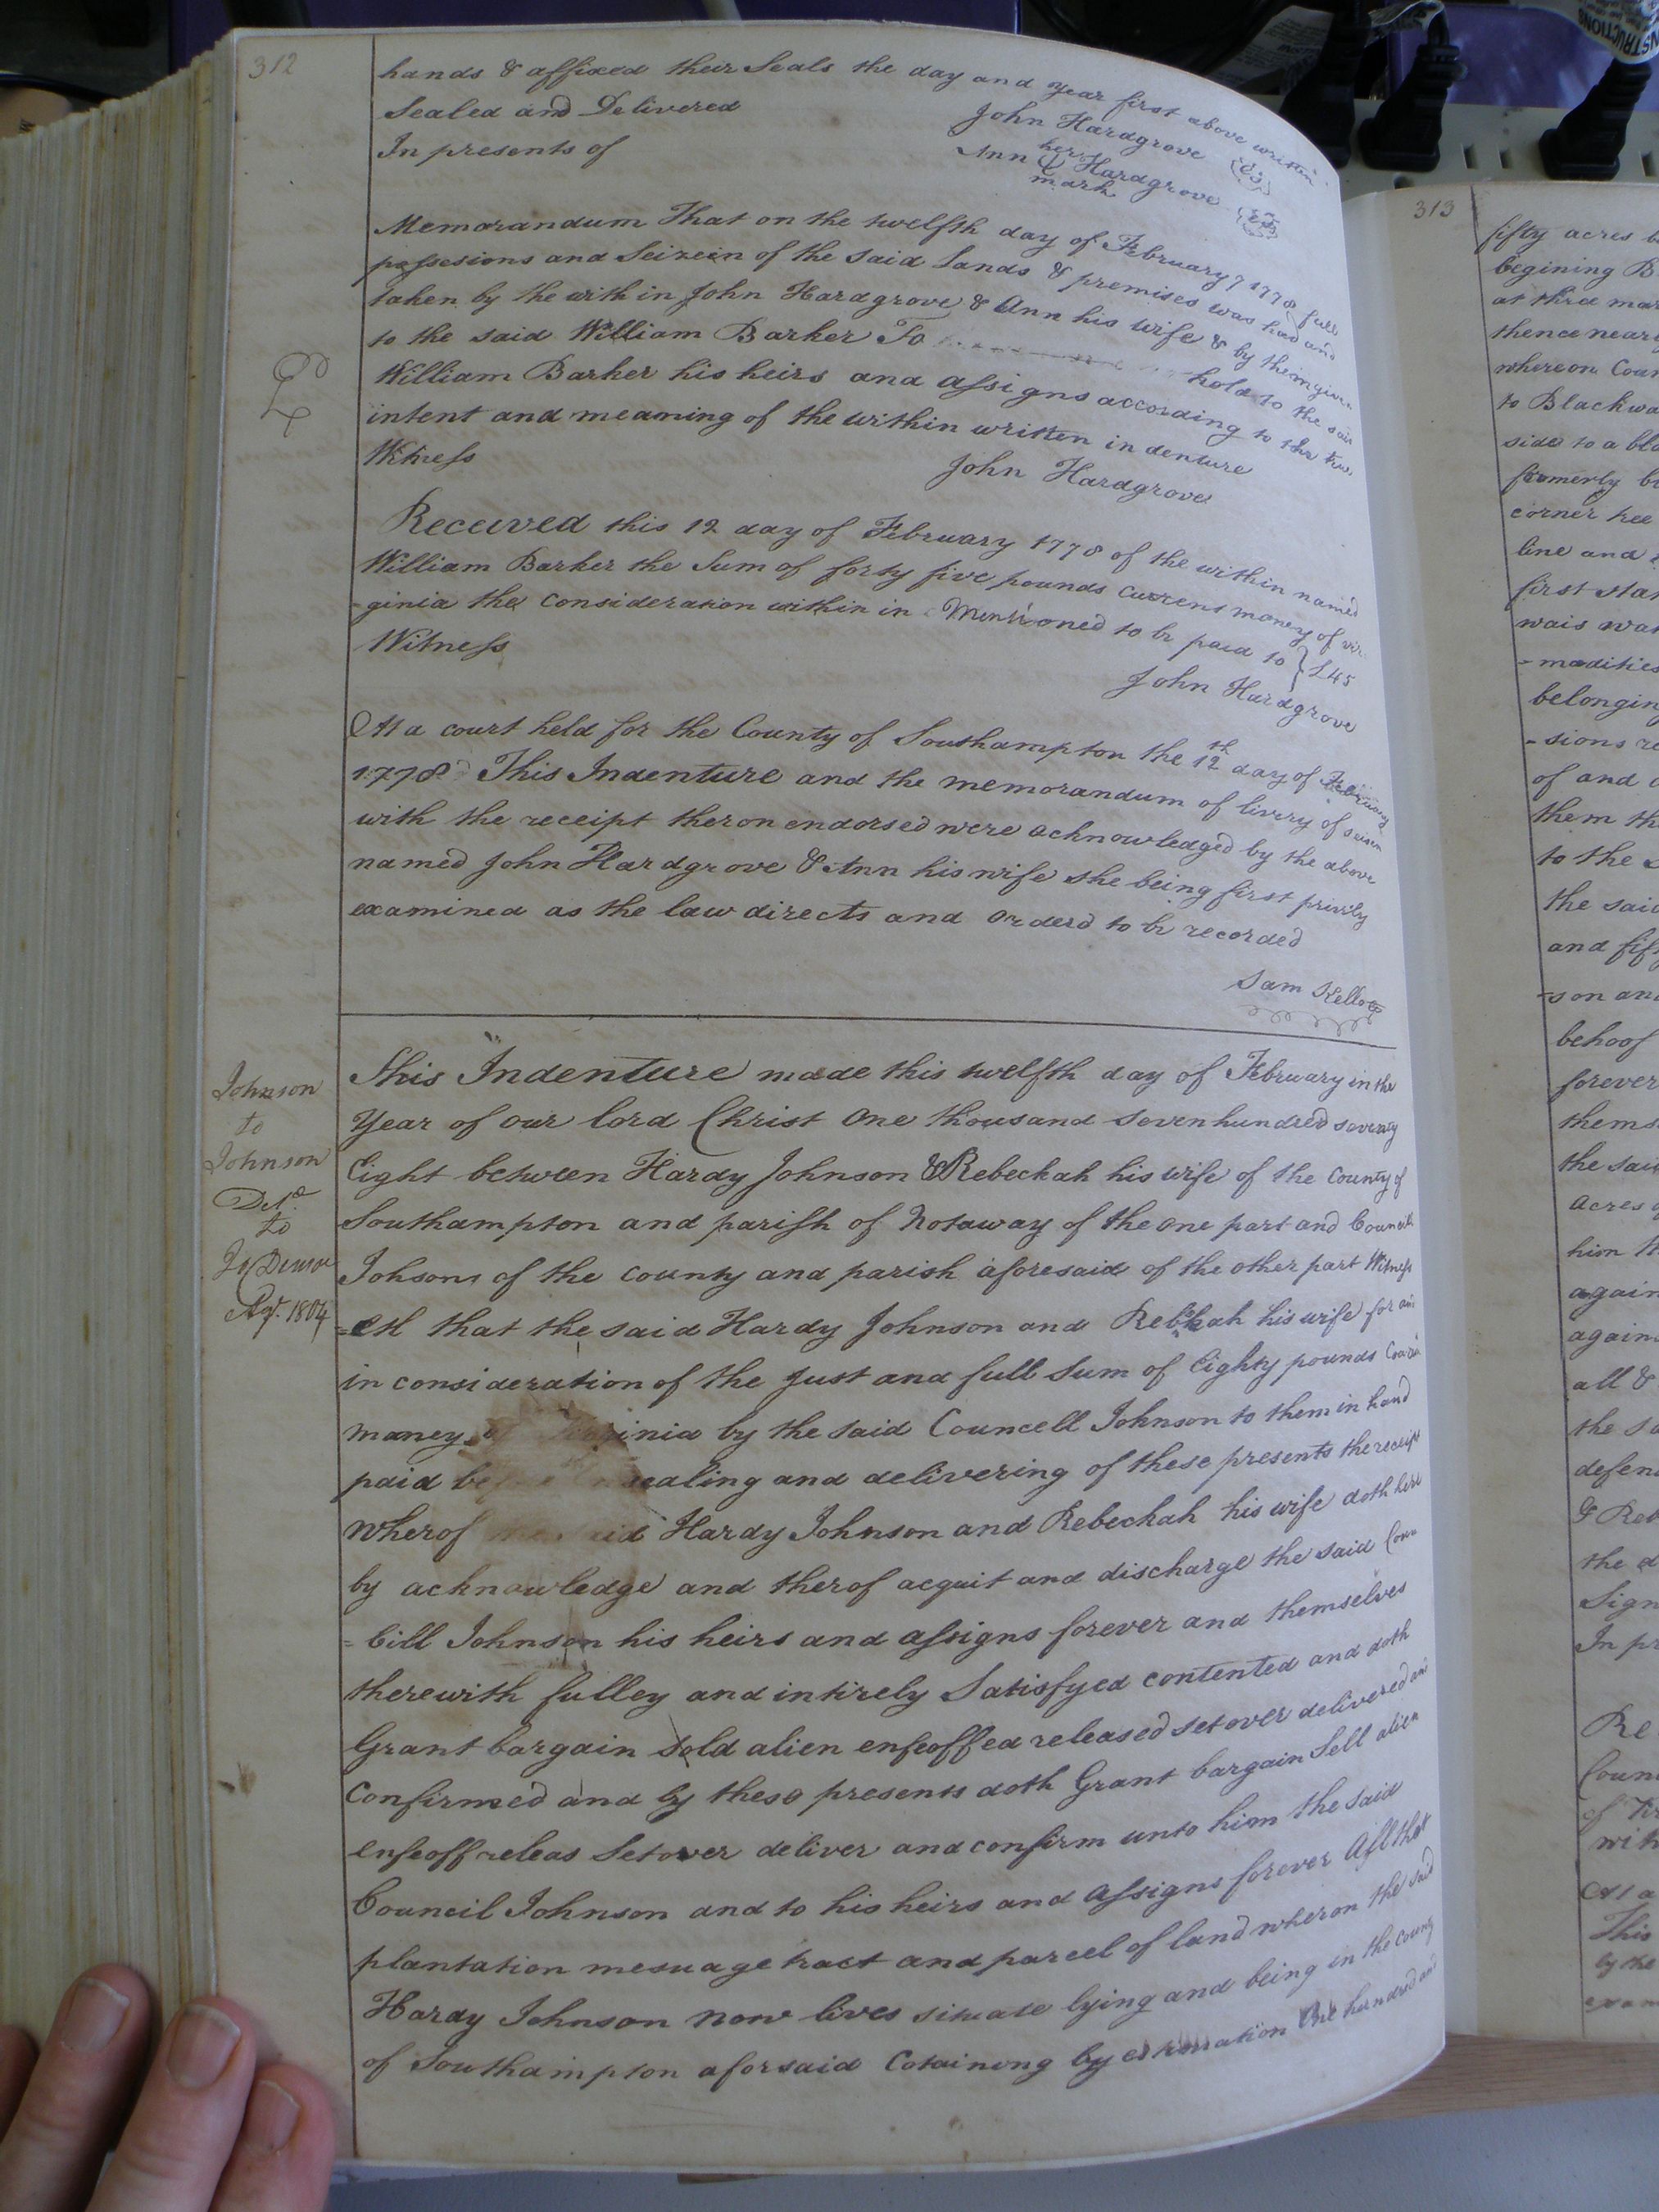 312
hands & affixed their Seals the day and year first above written
Sealed and Delivered
John Hardgrove
In presents of
her
Ann Hardgrove
mark
Memorandum That on the twelfth day of February 1778 full
possesions and Seizein of the said Lands & premises was had and
taken by the with in John Hardgrove & Ann his wife & by them given
to the said William Barker To hold to the said
William Barker his heirs and assigns according to the true
intent and meaning of the within written indenture
Witness
John Hardgrove
Received this 12 day of February 1778 of the within named
William Barker the Sum of forty five pounds current money of vir
=ginia the consideration within in Mentioned to be paid to } £45
Witness
John Hardgrove
At a court held for the County of Southampton the 12th day of February
1778 This Indenture and the memorandum of livery of seisen
with the receipt theron endorsed were acknowledged by the above
named John Hardgrove & Ann his wife she being first privily
examined as the law directs and orderd to be recorded
Sam Kello
Johnson
to
Johnson
Deld
to
Agt. 1804
This Indenture made this twelfth day of February in the
Year of our lord Christ one thousand seven hundred seventy
Eight between Hardy Johnson & Rebeckah his wife of the County of
Southampton and parish of Notaway of the one part and Council
Johson of the county and parish aforesaid of the other part Witness
=eth that the said Hardy Johnson and Rebkah his wife for and
in consideration of the Just and full Sum of Eighty pounds
money of Virginia by the said Councell Johnson to them in hand
paid before sealing and delivering of these presents the receipt
wherof the said Hardy Johnson and Rebeckah his wife doth here
by acknowledge and therof acquit and discharge the said Coun
=cill Johnson his heirs and assigns forever and themselves
therewith fulley and intirely Satisfyed contented and doth
Grant bargain sold alien enfeoffed released set over delivered and
Confirmed and by these presents doth Grant bargain Sell alien
enfeoff releas Setover deliver and confirm unto him the said
Council Johnson and to his heirs and assigns forever All that
plantation mesuage tract and parcel of land wheron the said
Hardy Johnson now lives situate lying and being in the County
of Southampton aforsaid Cotaining by estimation One hundred and
313
fifty acres
begining
at three
thence
whereon
to
side to a
fromerly
corner tree
line and
first
wais
=modities
belonging
=sions
of and
them
to the
the said
and
=son and
behoof
forever
the said
acres
him
again
all &
the
&
the
In
by the